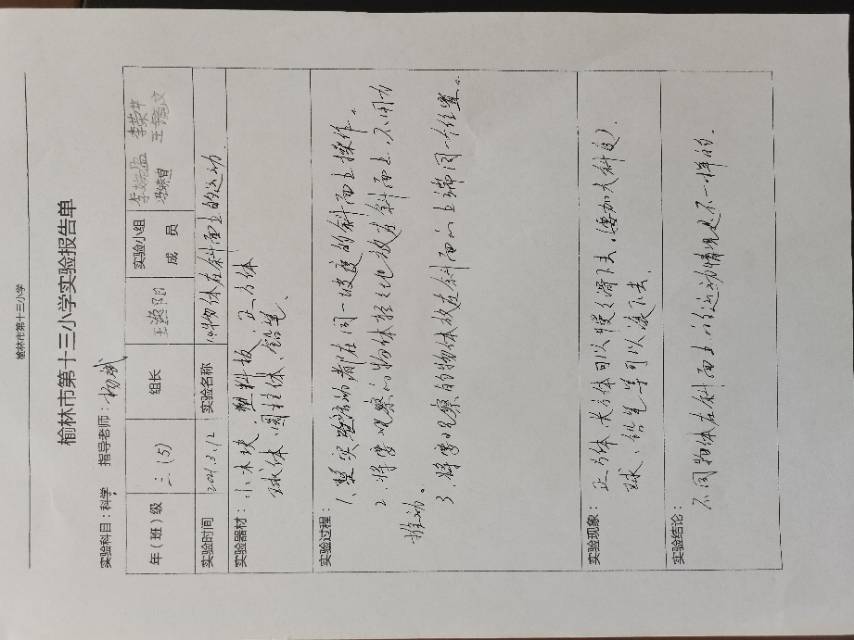 榆林市第十三小学
榆林市第十三小学实验报告单
实验科目：科学 指导老师：杨斌
年（班）级 三（5） 组长 实验小组成员
实验时间 2021.3.12 实验名称 物体在斜面上的运动
实验器材：小木块、塑料板、正方体
球体、圆柱体、铅笔、
实验过程：
1、整实验活动都在同一坡度的斜面上操作。
2、将要观察的物体轻轻地放在斜面上，不用力
推动。
3、将要观察的物体放在斜面的上端同一位置。
实验现象：正方体、长方体可以慢慢滑下去，（要加大斜度）.
球、铅笔等可以滚下去。
实验结论：
不同物体在斜面上的运动情况是不一样的.